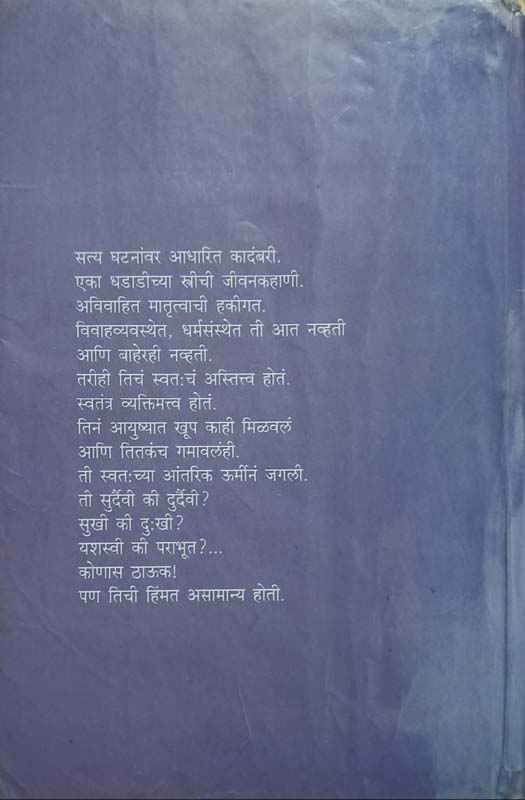 सत्य घटनांवर आधारित कादंबरी.
एका धडाडीच्या स्त्रीची जीवनकहाणी.
अविवाहित मातृत्वाची हकीगत.
विवाहव्यवस्थेत, धर्मसंस्थेत ती आत नव्हती
आणि बाहेरही नव्हती.
तरीही तिचं स्वत:चं अस्तित्त्व होतं.
स्वतंत्र व्यक्तिमत्त्व होतं.
तिनं आयुष्यात खूप काही मिळवलं
आणि तितकंच गमावलंही.
ती स्वत:च्या आंतरिक ऊर्मीनं जगली.
ती सुदैवी की दुर्दैवी?
सुखी की दु:खी?
यशस्वी की पराभूत?...
कोणास ठाऊक!
पण तिची हिंमत असामान्य होती.